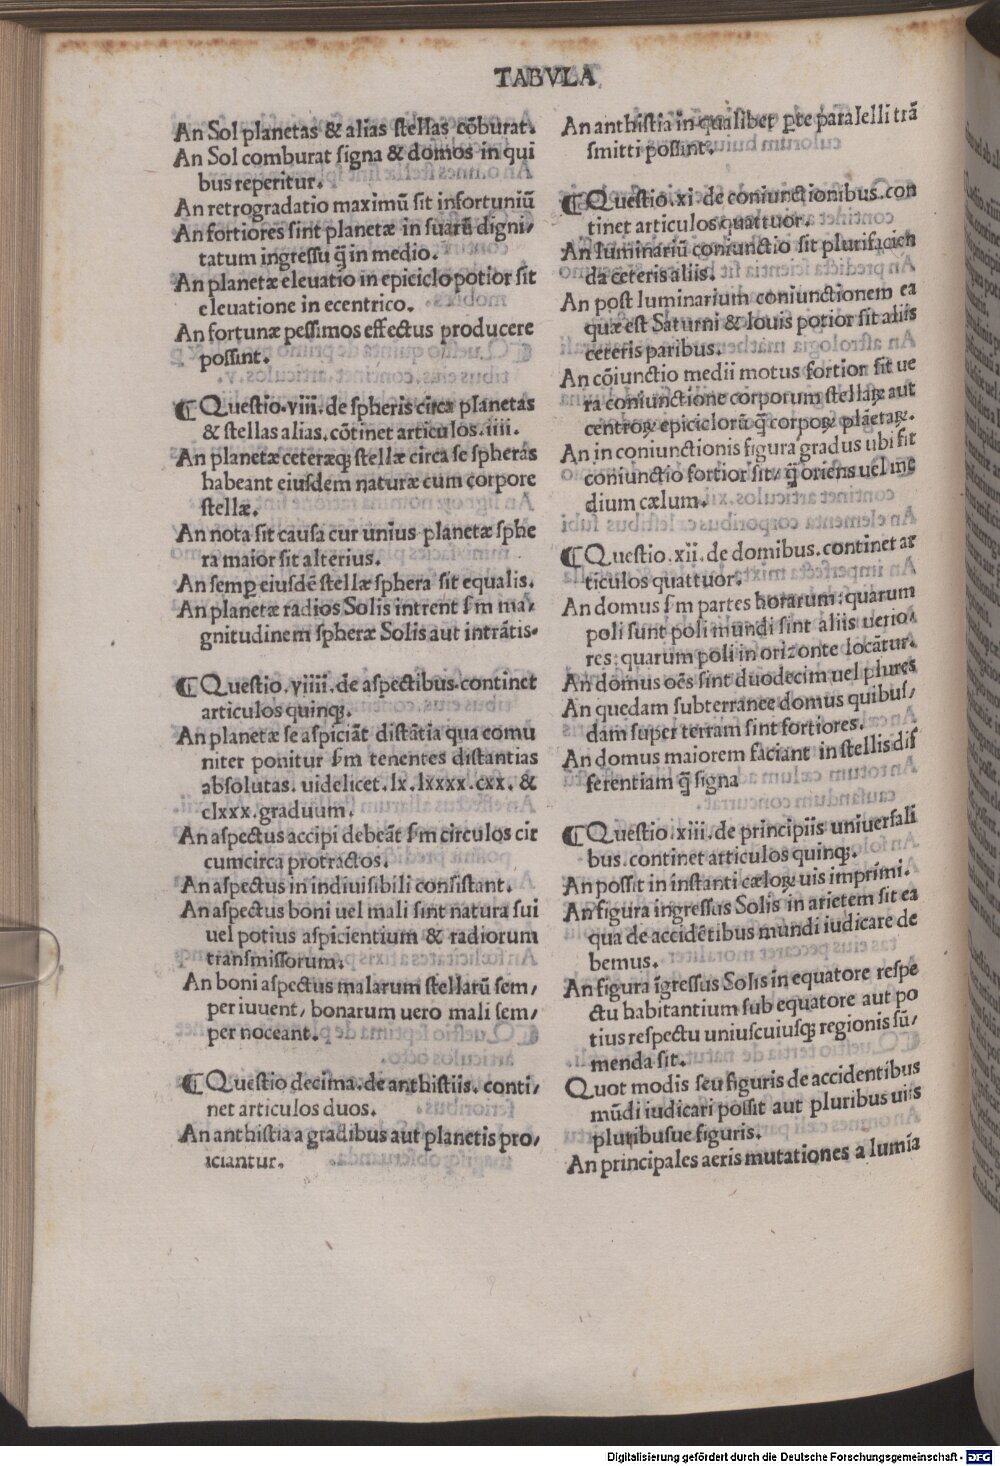 TABVLA
An Sol planetas & alias ſtellas cōburat.
An Sol comburat ſigna & domos in qui
bus reperitur.
An retrogradatio maximū ſit infortuniū
An fortiores ſint planetæ in ſuarū digni/
tatum ingreſſu q̄ in medio.
An planetæ eleuatio in epiciclo potior ſit
eleuatione in ecentrico.
An fortunæ peſſimos effectus producere
poſſint.
¶ Queſtio.viii.de ſpheris circa planetas
& ſtellas alias.cōtinet articulos.iiii.
An planetæ ceteræqꝫ ſtellæ circa ſe ſpheras
habeant eiuſdem naturæ cum corpore
ſtellæ.
An nota ſit cauſa cur unius planetæ ſphe
ra maior ſit alterius.
An ſemꝑ eiuſdē ſtellæ ſphera ſit equalis.
An planetæ radios Solis intrent ſm ma/
gnitudinem ſpheræ Solis aut intrātis.
¶ Queſtio.viiii.de aſpectibus.continet
articulos quinqꝫ.
An planetæ ſe aſpiciāt diſtātia qua comu
niter ponitur ſm tenentes diſtantias
abſolutas.uidelicet.lx.lxxxx.cxx.&
clxxx.graduum.
An aſpectus accipi debeāt ſm circulos cir
cumcirca protractos.
An aſpectus in indiuiſibili conſiſtant.
An aſpectus boni uel mali ſint natura ſui
uel potius aſpicientium & radiorum
tranſmiſſorum.
An boni aſpectus malarum ſtellarū ſem/
per iuuent/ bonarum uero mali ſem/
per noceant.
¶ Queſtio decima.de anthiſtiis.conti/
net articulos duos.
An anthiſtia a gradibus aut planetis pro/
iciantur.
An anthiſtia in qualibet ꝑte paralelli trā
ſmitti poſſint.
¶ Queſtio.xi.de coniunctionibus.con
tinet articulos quattuor.
An luminariū coniunctio ſit plurifacien
da ceteris aliis.
An poſt luminarium coniunctionem ea
quæ eſt Saturni & Iouis potior ſit aliis
ceteris paribus.
An cōiunctio medii motus fortior ſit ue
ra coniunctione corporum ſtellaꝝ aut
centroꝝ epiciclorū q̄ corpoꝝ plāetaꝝ.
An in coniunctionis figura gradus ubi fit
coniunctio fortior ſit/ q̄ oriens uel me
dium cælum.
¶ Queſtio.xii.de domibus.continet ar
ticulos quattuor.
An domus ſm partes horarum:quarum
poli ſunt poli mundi ſint aliis uerio/
res:quarum poli in orizonte locātur.
An domus oēs ſint duodecim uel plures
An quedam ſubterranee domus quibuſ/
dam ſuper terram ſint fortiores.
An domus maiorem faciant in ſtellis dif
ferentiam q̄ ſigna
¶ Queſtio.xiii.de principiis uniuerſali
bus.continet articulos quinqꝫ.
An poſſit in inſtanti cæloꝝ uis imprimi.
An figura ingreſſus Solis in arietem ſit ea
qua de accidētibus mundi iudicare de
bemus.
An figura īgreſſus Solis in equatore reſpe
ctu habitantium ſub equatore aut po
tius reſpectu uniuſcuiuſqꝫ regionis ſū/
menda ſit.
Quot modis ſeu figuris de accidentibus
mūdi iudicari poſſit aut pluribus uiis
pluribuſue figuris.
An principales aeris mutationes a lumīa
Digitalisierung gefördert durch die Deutsche Forschungsgemeinschaft - DFG